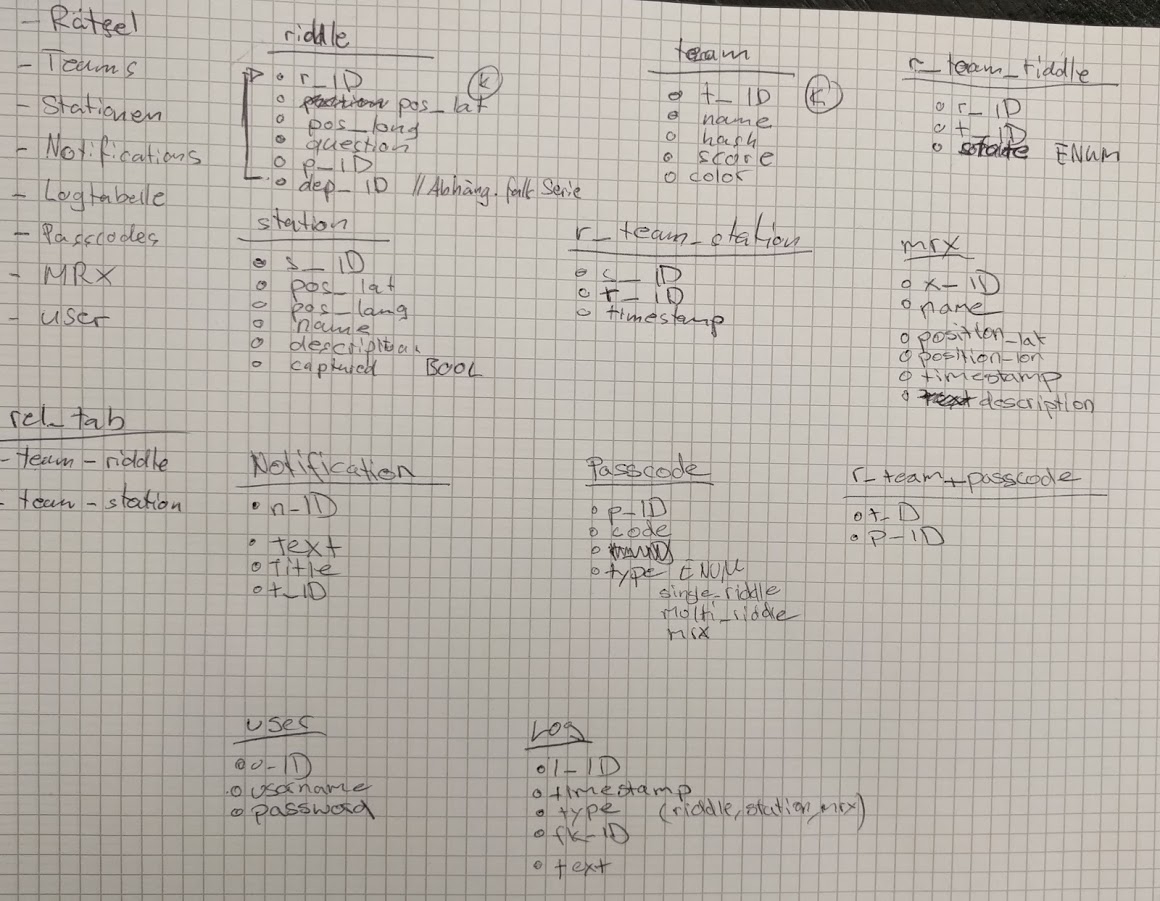 - Rätsel
- Teams
- Stationen
- Notifications
- Logtabelle
- Passcodes
- MRX
- user
rel_tab
- team-riddle
- team-station
riddle
r_ID
pos_lat
pos_long
question
p_ID
dep_ID // Abhäng. falls Serie
K
team
t_ID
name
hash
score
color
K
r_team_riddle
r_ID
t_ID
state ENUM
station
s_ID
pos_lat
pos_lang
name
description
captured BOOL
r_team_station
s_ID
t_ID
timestamp
mrx
x-ID
name
position_lat
position-lon
timestamp
description
Notification
n-ID
text
Title
t_ID
Passcode
p-ID
code
type ENUM
single_riddle
multi_riddle
mrx
r_team_passcode
t_ID
p-ID
user
u-ID
username
password
Log
l-ID
timestamp
type (riddle, station, mrx)
fk-ID
text